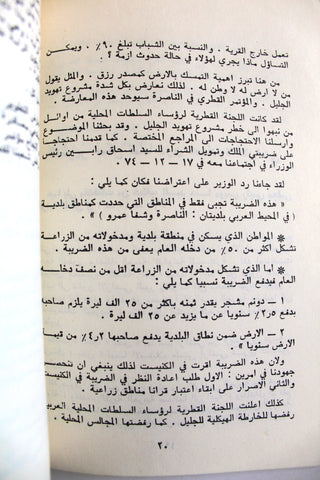 تعمل خارج القرية . والنسبة بين الشباب تبلغ ٩٠٪ . ويمكن
التساؤل ماذا يجري لهؤلاء في حالة حدوث ازمة ؟
من هنا تبرز اهمية التمسك بالارض كمصدر رزق . والمثل يقول
من لا ارض له لا وطن له . لذلك نعارض بكل شدة مشروع تهويد
الجليل . والمؤتمر القطري في الناصرة سيوحد هذه المعارضة .
لقد كانت اللجنة القطرية لرؤساء السلطات المحلية من اوائل
من نبهوا الى خطر مشروع تهويد الجليل . وقد بحثنا الموضوع
وارسلنا الاحتجاجات الى المراجع المختصة . كما قدمنا احتجاجنا
على ضريبتي الملك وتمويل الشراء للسيد اسحاق رابين رئيس
الوزراء في اجتماعنا معه في ١٧ – ١٢ – ٧٤ .
لقد جاءنا رد الوزير على اعتراضنا فكان كما يلي :
« هذه الضريبة تجبى فقط في المناطق التي حددت كمناطق بلدية
( في المحيط العربي بلديتان : الناصرة وشفا عمرو ) » .
✱ المواطن الذي يسكن في منطقة بلدية ومدخولاته من الزراعة
تشكل اكثر من ٥٠٪ من دخله العام يعفى من هذه الضريبة .
✱ اما الذي تشكل مدخولاته من الزراعة اقل من نصف دخله
العام فيدفع الضريبة نسبيا كما يلي :
١ – دونم مشجر يقدر ثمنه باكثر من ٢٥ الف ليرة يلزم صاحبها
بدفع ٢٫٥٪ سنويا عن ما يزيد عن ٢٥ الف ليرة .
٢ – الارض ضمن نطاق البلدية يدفع صاحبها ٢٫٤٪ من قيمة
الارض سنويا » .
ولان هذه الضريبة اقرت في الكنيست لذلك ينبغي ان تنحصر
جهودنا في امرين : الاول طلب اعادة النظر في الضريبة في الكنيست
والثاني الاصرار على ابقاء اعتبار قرانا مناطق زراعية .
كذلك اعلنت اللجنة القطرية لرؤساء السلطات المحلية العربية
رفضها للخارطة الهيكلية للجليل . كما رفضتها المجالس المحلية
٢٠